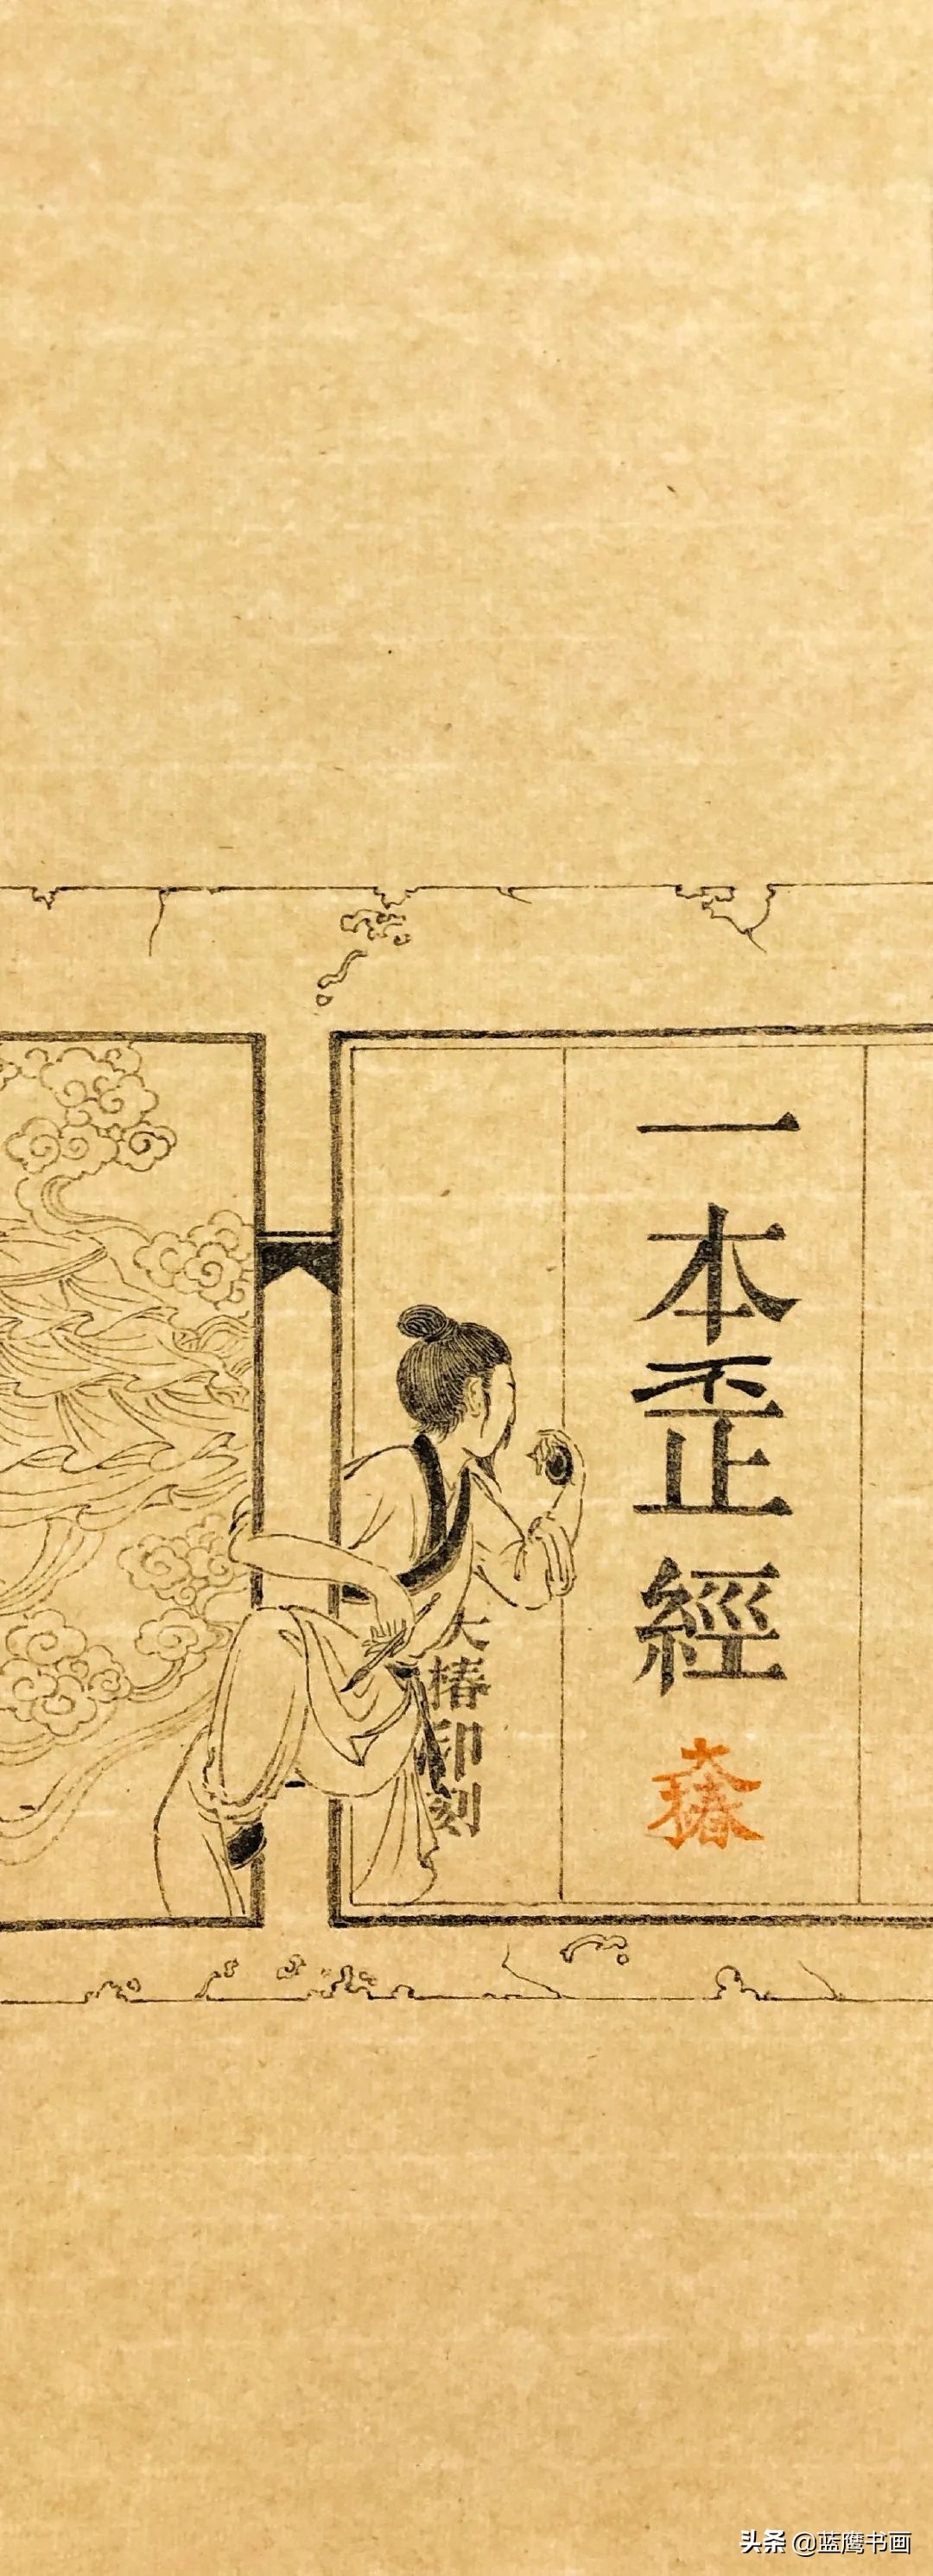 一本歪經
大椿
大椿印刻
头条 @蓝鹰书画